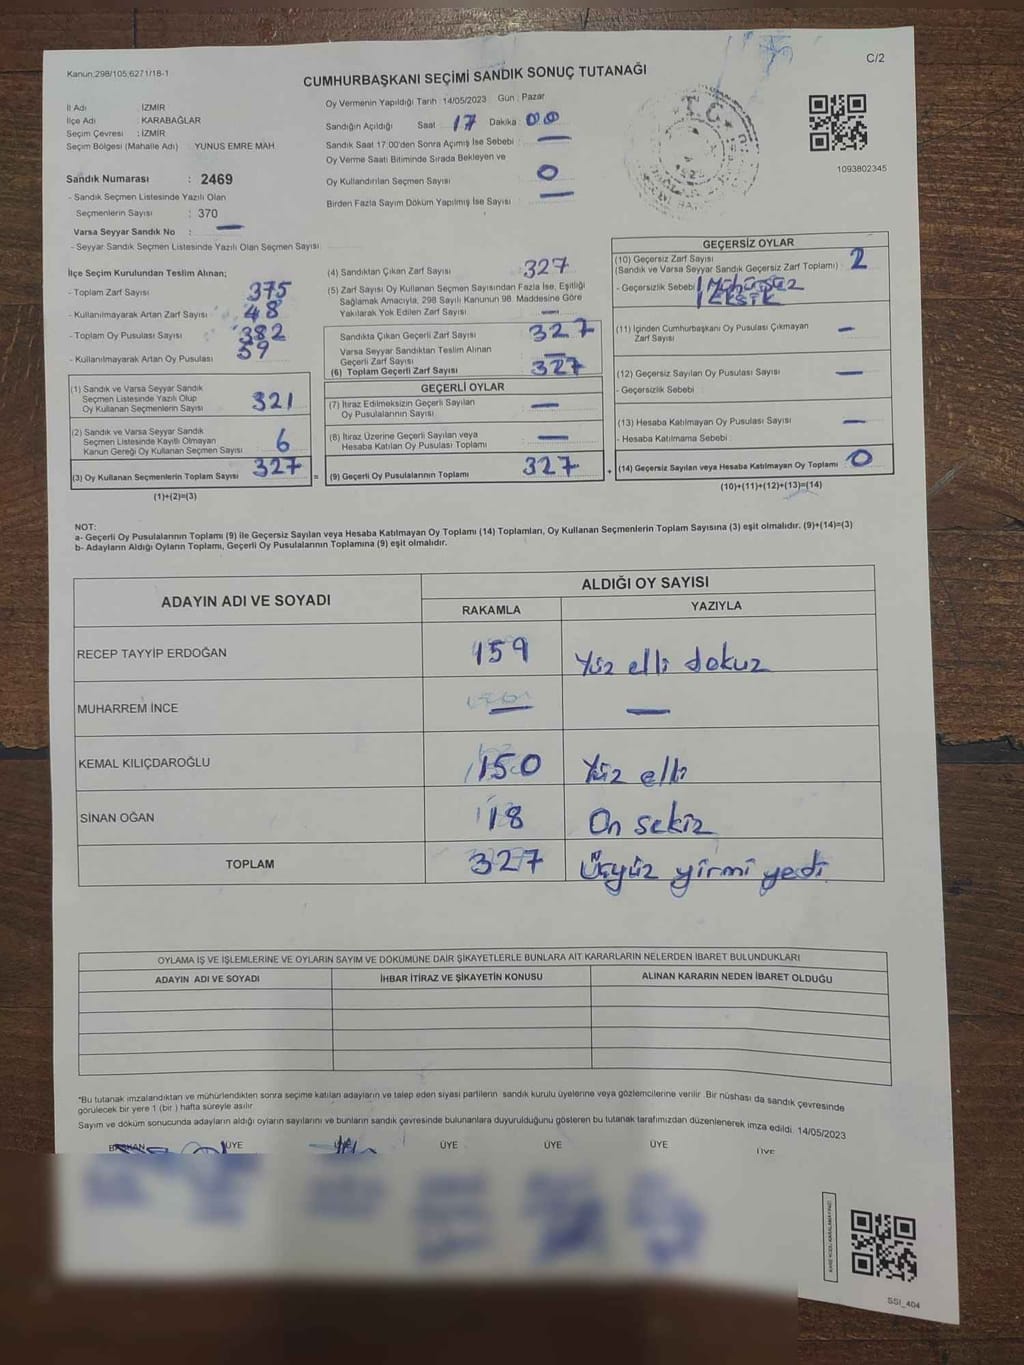 Kanun:298/105;6271/18-1
C/2
CUMHURBAŞKANI SEÇİMİ SANDIK SONUÇ TUTANAĞI
İl Adı : İZMİR
İlçe Adı : KARABAĞLAR
Seçim Çevresi : İZMİR
Seçim Bölgesi (Mahalle Adı) YUNUS EMRE MAH.
Sandık Numarası : 2469
- Sandık Seçmen Listesinde Yazılı Olan
Seçmenlerin Sayısı : 370
Varsa Seyyar Sandık No : —
- Seyyar Sandık Seçmen Listesinde Yazılı Olan Seçmen Sayısı
Oy Vermenin Yapıldığı Tarih 14/05/2023 Gün : Pazar
Sandığın Açıldığı Saat 17 Dakika 00
Sandık Saat 17:00'den Sonra Açımış İse Sebebi : —
Oy Verme Saati Bitiminde Sırada Bekleyen ve
Oy Kullandırılan Seçmen Sayısı 0
Birden Fazla Sayım Döküm Yapılmış İse Sayısı —
T.C.
1093802345
İlçe Seçim Kurulundan Teslim Alınan;
- Toplam Zarf Sayısı 375
- Kullanılmayarak Artan Zarf Sayısı 48
- Toplam Oy Pusulası Sayısı 382
- Kullanılmayarak Artan Oy Pusulası 59
(1) Sandık ve Varsa Seyyar Sandık
Seçmen Listesinde Yazılı Olup
Oy Kullanan Seçmenlerin Sayısı 321
(2) Sandık ve Varsa Seyyar Sandık
Seçmen Listesinde Kayıtlı Olmayan
Kanun Gereği Oy Kullanan Seçmen Sayısı 6
(3) Oy Kullanan Seçmenlerin Toplam Sayısı 327 =
(1)+(2)=(3)
(4) Sandıktan Çıkan Zarf Sayısı 327
(5) Zarf Sayısı Oy Kullanan Seçmen Sayısından Fazla İse, Eşitliği
Sağlamak Amacıyla, 298 Sayılı Kanunun 98. Maddesine Göre
Yakılarak Yok Edilen Zarf Sayısı —
Sandıkta Çıkan Geçerli Zarf Sayısı 327
Varsa Seyyar Sandıktan Teslim Alınan
Geçerli Zarf Sayısı —
(6) Toplam Geçerli Zarf Sayısı 327
GEÇERLİ OYLAR
(7) İtiraz Edilmeksizin Geçerli Sayılan
Oy Pusulalarının Sayısı —
(8) İtiraz Üzerine Geçerli Sayılan veya
Hesaba Katılan Oy Pusulası Toplamı —
(9) Geçerli Oy Pusulalarının Toplamı 327 +
GEÇERSİZ OYLAR
(10) Geçersiz Zarf Sayısı 2
(Sandık ve Varsa Seyyar Sandık Geçersiz Zarf Toplamı)
- Geçersizlik Sebebi 1 Mühürsüz
1 Eksik
(11) İçinden Cumhurbaşkanı Oy Pusulası Çıkmayan
Zarf Sayısı —
(12) Geçersiz Sayılan Oy Pusulası Sayısı —
- Geçersizlik Sebebi
(13) Hesaba Katılmayan Oy Pusulası Sayısı —
- Hesaba Katılmama Sebebi
(14) Geçersiz Sayılan veya Hesaba Katılmayan Oy Toplamı 0
(10)+(11)+(12)+(13)=(14)
NOT:
a- Geçerli Oy Pusulalarının Toplamı (9) ile Geçersiz Sayılan veya Hesaba Katılmayan Oy Toplamı (14) Toplamları, Oy Kullanan Seçmenlerin Toplam Sayısına (3) eşit olmalıdır. (9)+(14)=(3)
b- Adayların Aldığı Oyların Toplamı, Geçerli Oy Pusulalarının Toplamına (9) eşit olmalıdır.
ADAYIN ADI VE SOYADI
ALDIĞI OY SAYISI
RAKAMLA YAZIYLA
RECEP TAYYİP ERDOĞAN 159 Yüz elli dokuz
MUHARREM İNCE — —
KEMAL KILIÇDAROĞLU 150 Yüz elli
SİNAN OĞAN 18 On sekiz
TOPLAM 327 Üçyüz yirmi yedi
OYLAMA İŞ VE İŞLEMLERİNE VE OYLARIN SAYIM VE DÖKÜMÜNE DAİR ŞİKAYETLERLE BUNLARA AİT KARARLARIN NELERDEN İBARET BULUNDUKLARI
ADAYIN ADI VE SOYADI İHBAR İTİRAZ VE ŞİKAYETİN KONUSU ALINAN KARARIN NEDEN İBARET OLDUĞU
*Bu tutanak imzalandıktan ve mühürlendikten sonra seçime katılan adayların ve talep eden siyasi partilerin sandık kurulu üyelerine veya gözlemcilerine verilir. Bir nüshası da sandık çevresinde
görülecek bir yere 1 (bir ) hafta süreyle asılır.
Sayım ve döküm sonucunda adayların aldığı oyların sayılarını ve bunların sandık çevresinde bulunanlara duyurulduğunu gösteren bu tutanak tarafımızdan düzenlenerek imza edildi. 14/05/2023
BAŞKAN ÜYE ÜYE ÜYE ÜYE ÜYE ÜYE
SSI_404